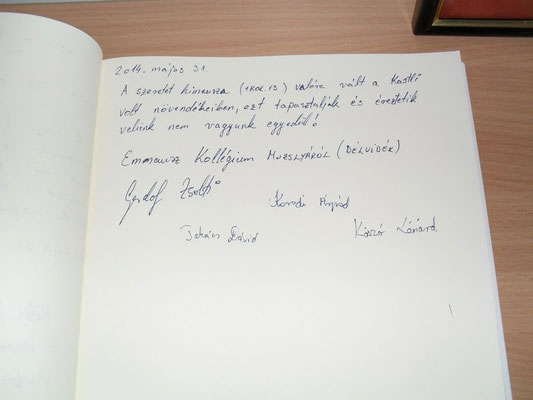 2014. május 31.
A szeretet himnusza (1Kor. 13) valóra vált a Kastli
volt növendékeiben, ezt tapasztaljuk és éreztetik
velünk nem vagyunk egyedül!
Emmausz Kollégium Muzslyáról (Délvidék)
Zsolt
Árpád
Dávid
Lénárd